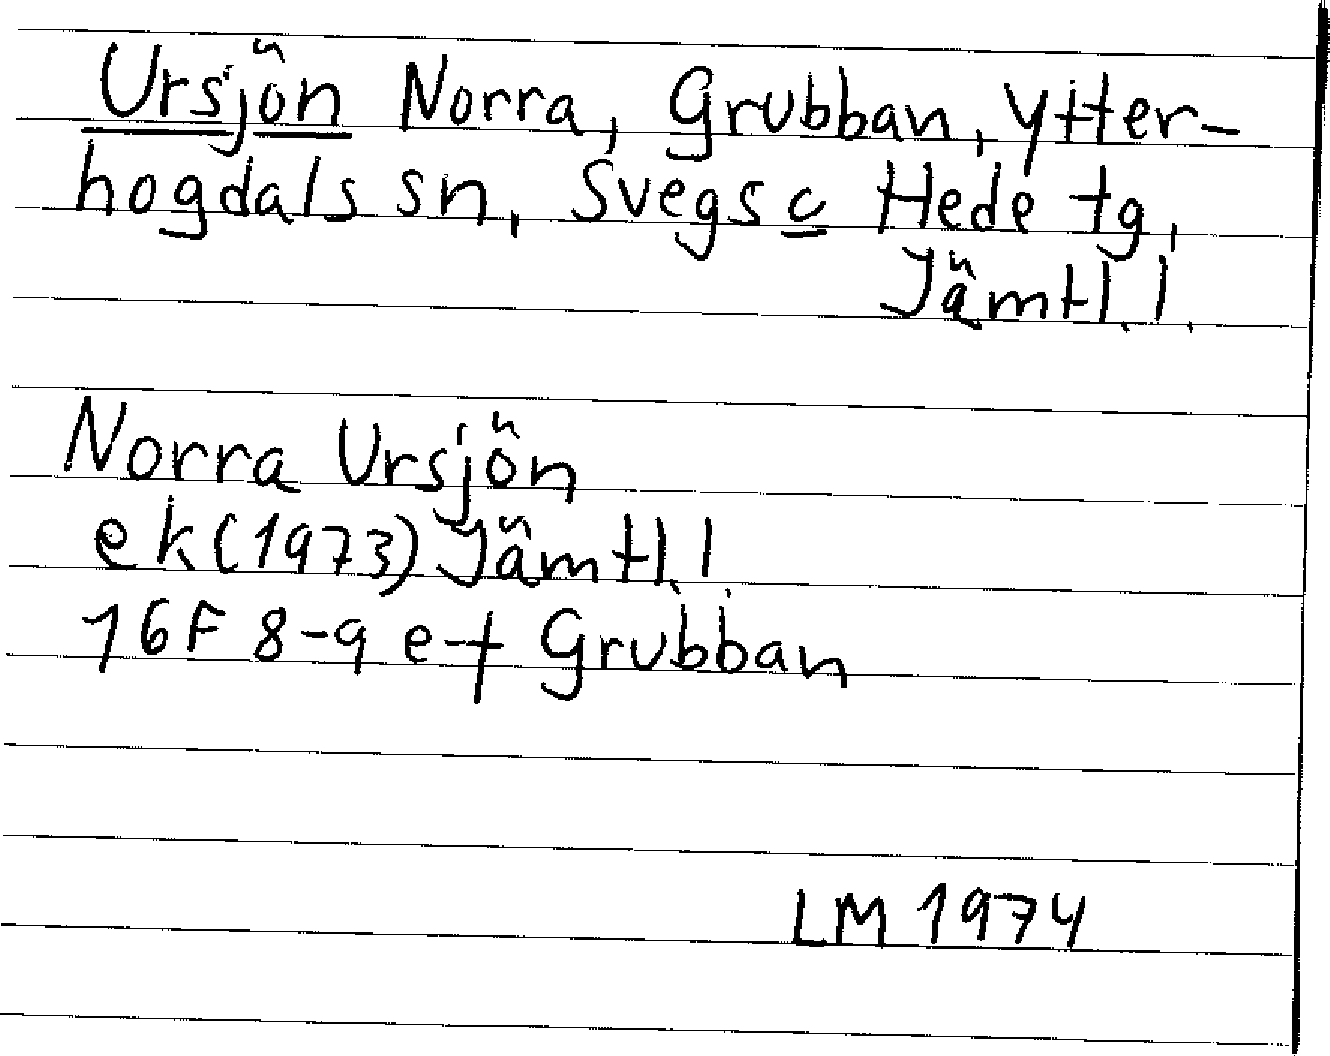 Ursjön Norra, Grubban, Ytter-
hogdals sn, Svegs c Hede tg,
Jämtl. l.
Norra Ursjön
ek (1973) Jämtl. l.
16F 8-9 e-f Grubban
LM 1974